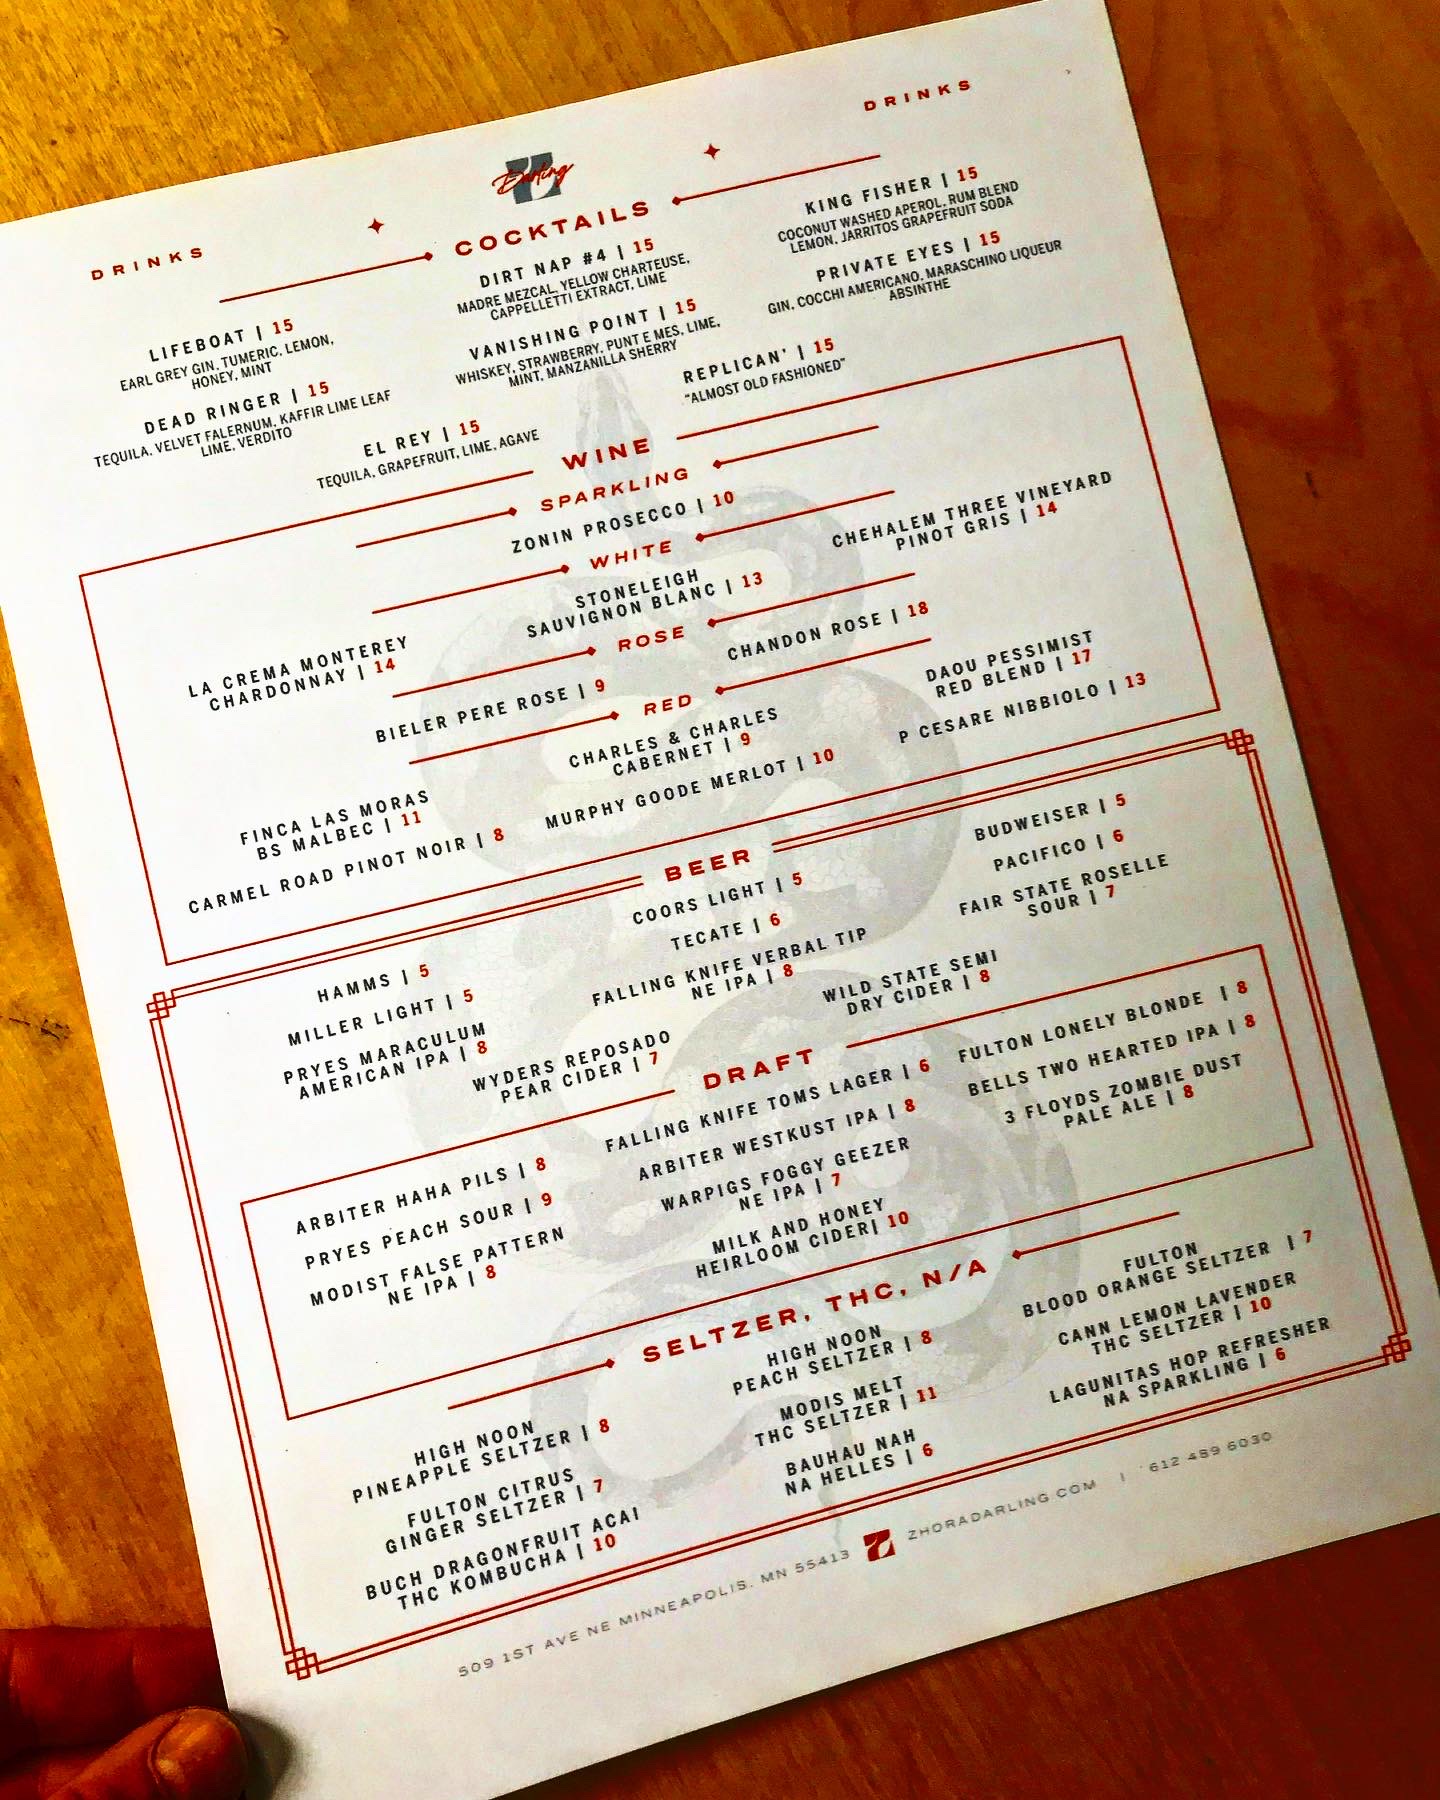 DRINKS
DRINKS
Darling
COCKTAILS
LIFEBOAT | 15
EARL GREY GIN, TUMERIC, LEMON,
HONEY, MINT
DEAD RINGER | 15
TEQUILA, VELVET FALERNUM, KAFFIR LIME LEAF
LIME, VERDITO
DIRT NAP #4 | 15
MADRE MEZCAL, YELLOW CHARTEUSE,
CAPPELLETTI EXTRACT, LIME
VANISHING POINT | 15
WHISKEY, STRAWBERRY, PUNT E MES, LIME,
MINT, MANZANILLA SHERRY
KING FISHER | 15
COCONUT WASHED APEROL, RUM BLEND
LEMON, JARRITOS GRAPEFRUIT SODA
PRIVATE EYES | 15
GIN, COCCHI AMERICANO, MARASCHINO LIQUEUR
ABSINTHE
EL REY | 15
TEQUILA, GRAPEFRUIT, LIME, AGAVE
REPLICAN' | 15
"ALMOST OLD FASHIONED"
WINE
SPARKLING
ZONIN PROSECCO | 10
WHITE
LA CREMA MONTEREY
CHARDONNAY | 14
STONELEIGH
SAUVIGNON BLANC | 13
CHEHALEM THREE VINEYARD
PINOT GRIS | 14
ROSE
BIELER PERE ROSE | 9
CHANDON ROSE | 18
RED
FINCA LAS MORAS
BS MALBEC | 11
CHARLES & CHARLES
CABERNET | 9
DAOU PESSIMIST
RED BLEND | 17
CARMEL ROAD PINOT NOIR | 8
MURPHY GOODE MERLOT | 10
P CESARE NIBBIOLO | 13
BEER
HAMMS | 5
MILLER LIGHT | 5
PRYES MARACULUM
AMERICAN IPA | 8
COORS LIGHT | 5
TECATE | 6
FALLING KNIFE VERBAL TIP
NE IPA | 8
BUDWEISER | 5
PACIFICO | 6
FAIR STATE ROSELLE
SOUR | 7
WYDERS REPOSADO
PEAR CIDER | 7
WILD STATE SEMI
DRY CIDER | 8
DRAFT
ARBITER HAHA PILS | 8
PRYES PEACH SOUR | 9
MODIST FALSE PATTERN
NE IPA | 8
FALLING KNIFE TOMS LAGER | 6
ARBITER WESTKUST IPA | 8
WARPIGS FOGGY GEEZER
NE IPA | 7
MILK AND HONEY
HEIRLOOM CIDER| 10
FULTON LONELY BLONDE | 8
BELLS TWO HEARTED IPA | 8
3 FLOYDS ZOMBIE DUST
PALE ALE | 8
SELTZER, THC, N/A
HIGH NOON
PINEAPPLE SELTZER | 8
FULTON CITRUS
GINGER SELTZER | 7
BUCH DRAGONFRUIT ACAI
THC KOMBUCHA | 10
HIGH NOON
PEACH SELTZER | 8
MODIS MELT
THC SELTZER | 11
BAUHAU NAH
NA HELLES | 6
FULTON
BLOOD ORANGE SELTZER | 7
CANN LEMON LAVENDER
THC SELTZER | 10
LAGUNITAS HOP REFRESHER
NA SPARKLING | 6
509 1ST AVE NE MINNEAPOLIS, MN 55413 ZHORADARLING.COM | 612 489 6030